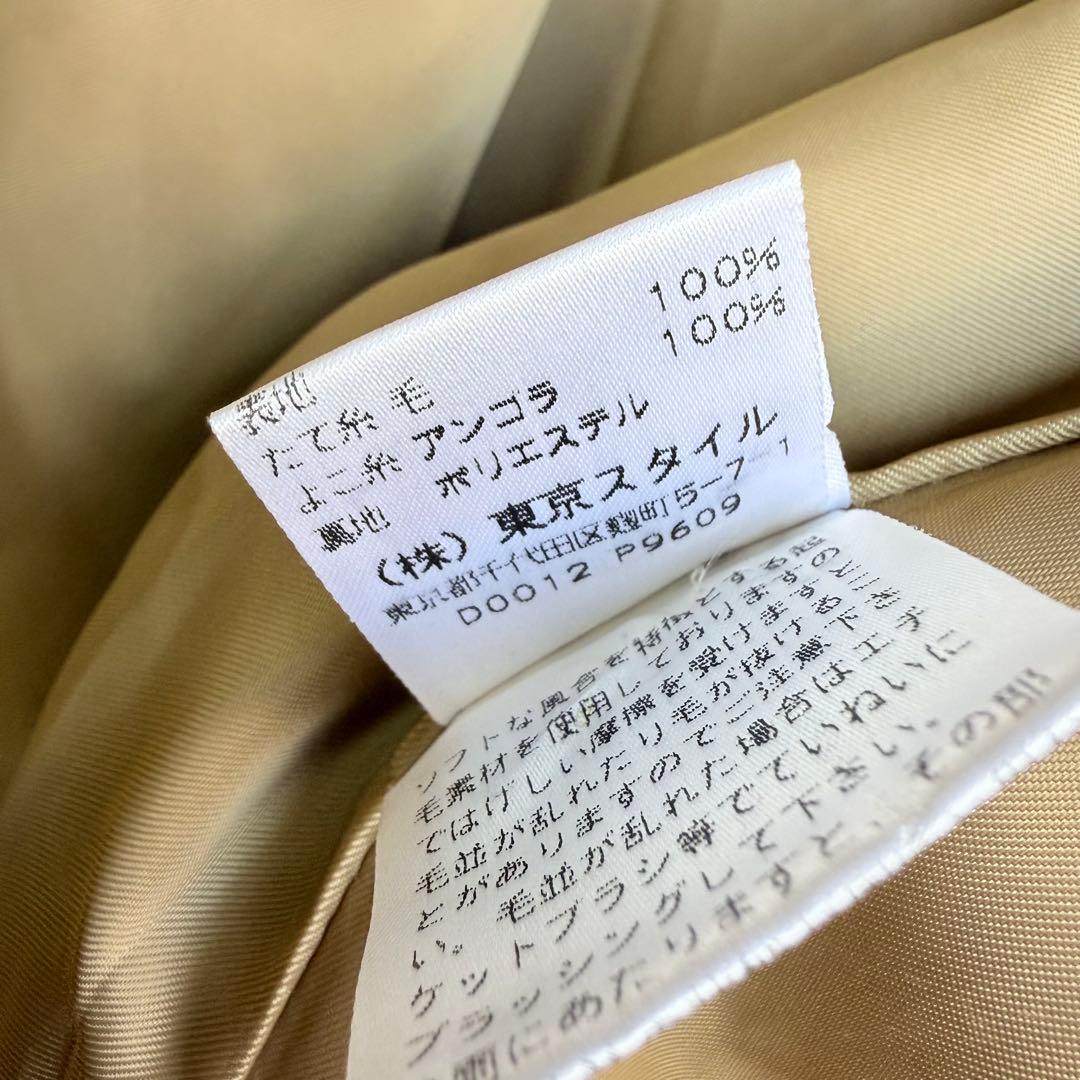 表地
たて糸 毛 100%
よこ糸 アンゴラ 100%
裏地 ポリエステル
(株) 東京スタイル
東京都千代田区麹町5-7-1
D0012 P9609
ソフトな風合を特徴とする起
毛素材を使用しておりますの
ではげしい摩擦を受けますと
毛並が乱れたり毛が抜けるこ
とがありますのでご注意下さ
い。毛並が乱れた場合はエチ
ケットブラシ等でていねいに
ブラッシングして下さい。
間にあたりますと、その部